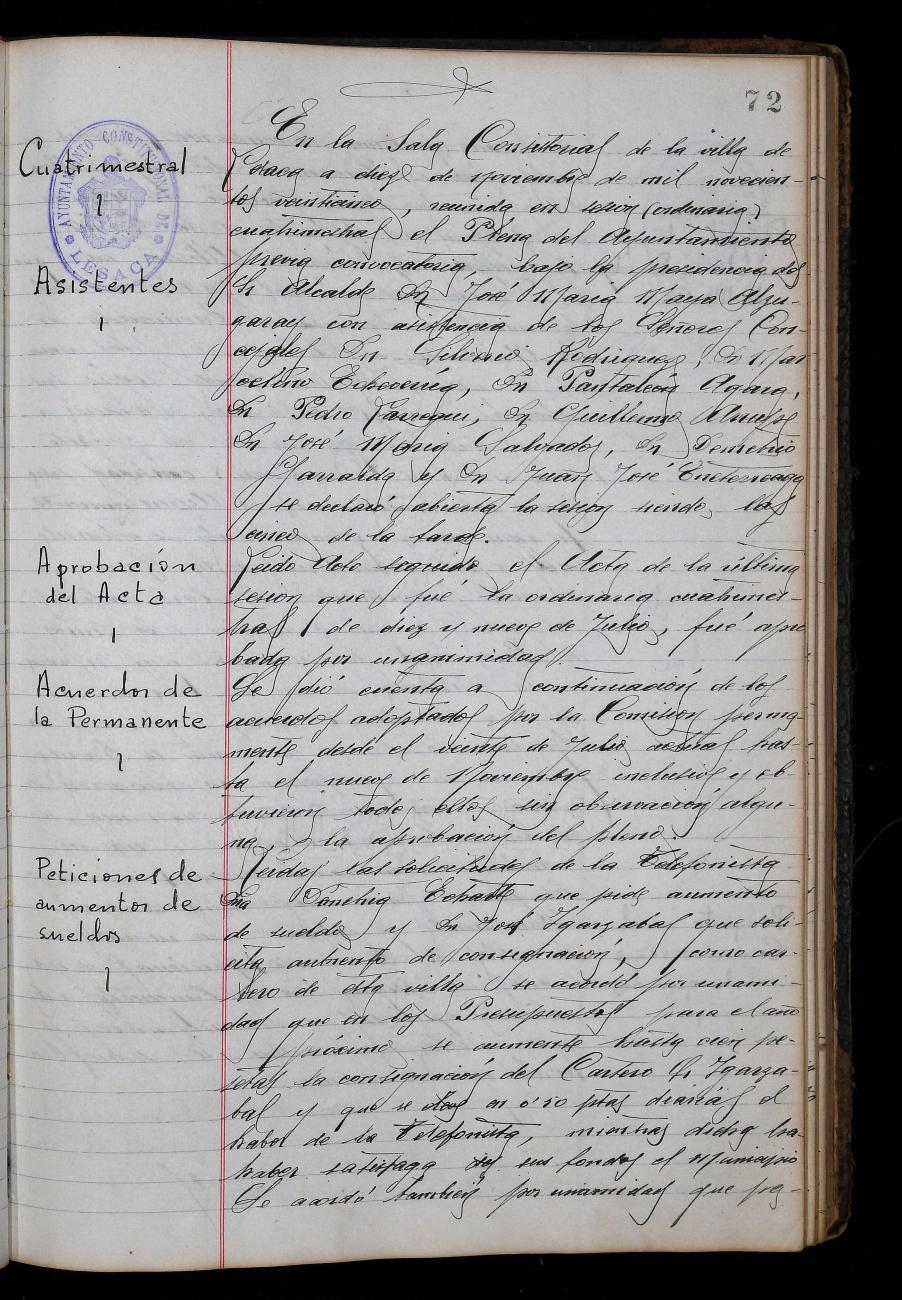 72
AYUNTAMIENTO CONSTITUCIONAL DE
LESACA
Cuatrimestral
Asistentes
Aprobación
del Acta
Acuerdos de
la Permanente
Peticiones de
aumentos de
sueldos
En la Sala Consitorial de la villa de
Lesaca a diez de noviembre de mil novecien-
tos veinticinco, reunida en sesion (ordinaria)
cuatrimestral el Pleno del Ayuntamiento
previa convocatoria, bajo la presidencia del
Sr Alcalde Dn José Maria Maya Alzu-
garay con asistencia de los Señores Con-
cejales Dn Silverio Rodriguez, Dn Mar
celino Echeverria, Dn Pantaleon Agara,
Dn Pedro Larregui, Dn Guillermo
Dn José Maria Salvador, Dn Demetrio
Yarralda y Dn Juan José Eneterreaga
se declaró abierta la sesion siendo las
cinco de la tarde.
Leido Acto seguido el Acta de la última
sesion que fué la ordinaria cuatrimes-
tral de diez y nueve de Julio, fué apro
bada por unanimidad
Se dió cuenta a continuación de los
acuerdos adoptados por la Comision perma-
nente desde el veinte de Julio actual has-
ta el nueve de Noviembre inclusive y ob-
tuvieron todos ellos sin observacion algu-
na, la aprobacion del pleno.
Leidas las solicitudes de la Telefonista
Dña Conchia Echarte que pide aumento
de sueldo y Dn José Igarzabal que soli-
cita aumento de consignación, como car-
tero de esta villa se acordó por unami-
dad que en los Presupuestos para el año
próximo se aumente hasta cien pe-
setas la consignación del Cartero Sr Igarza-
bal y que se eleve en 0'50 ptas diarias el
haber de la Telefonista, mientras dicho ha-
haber satisfaga de sus fondos el Municipio
Se acordó tambien por unamidad que pa-